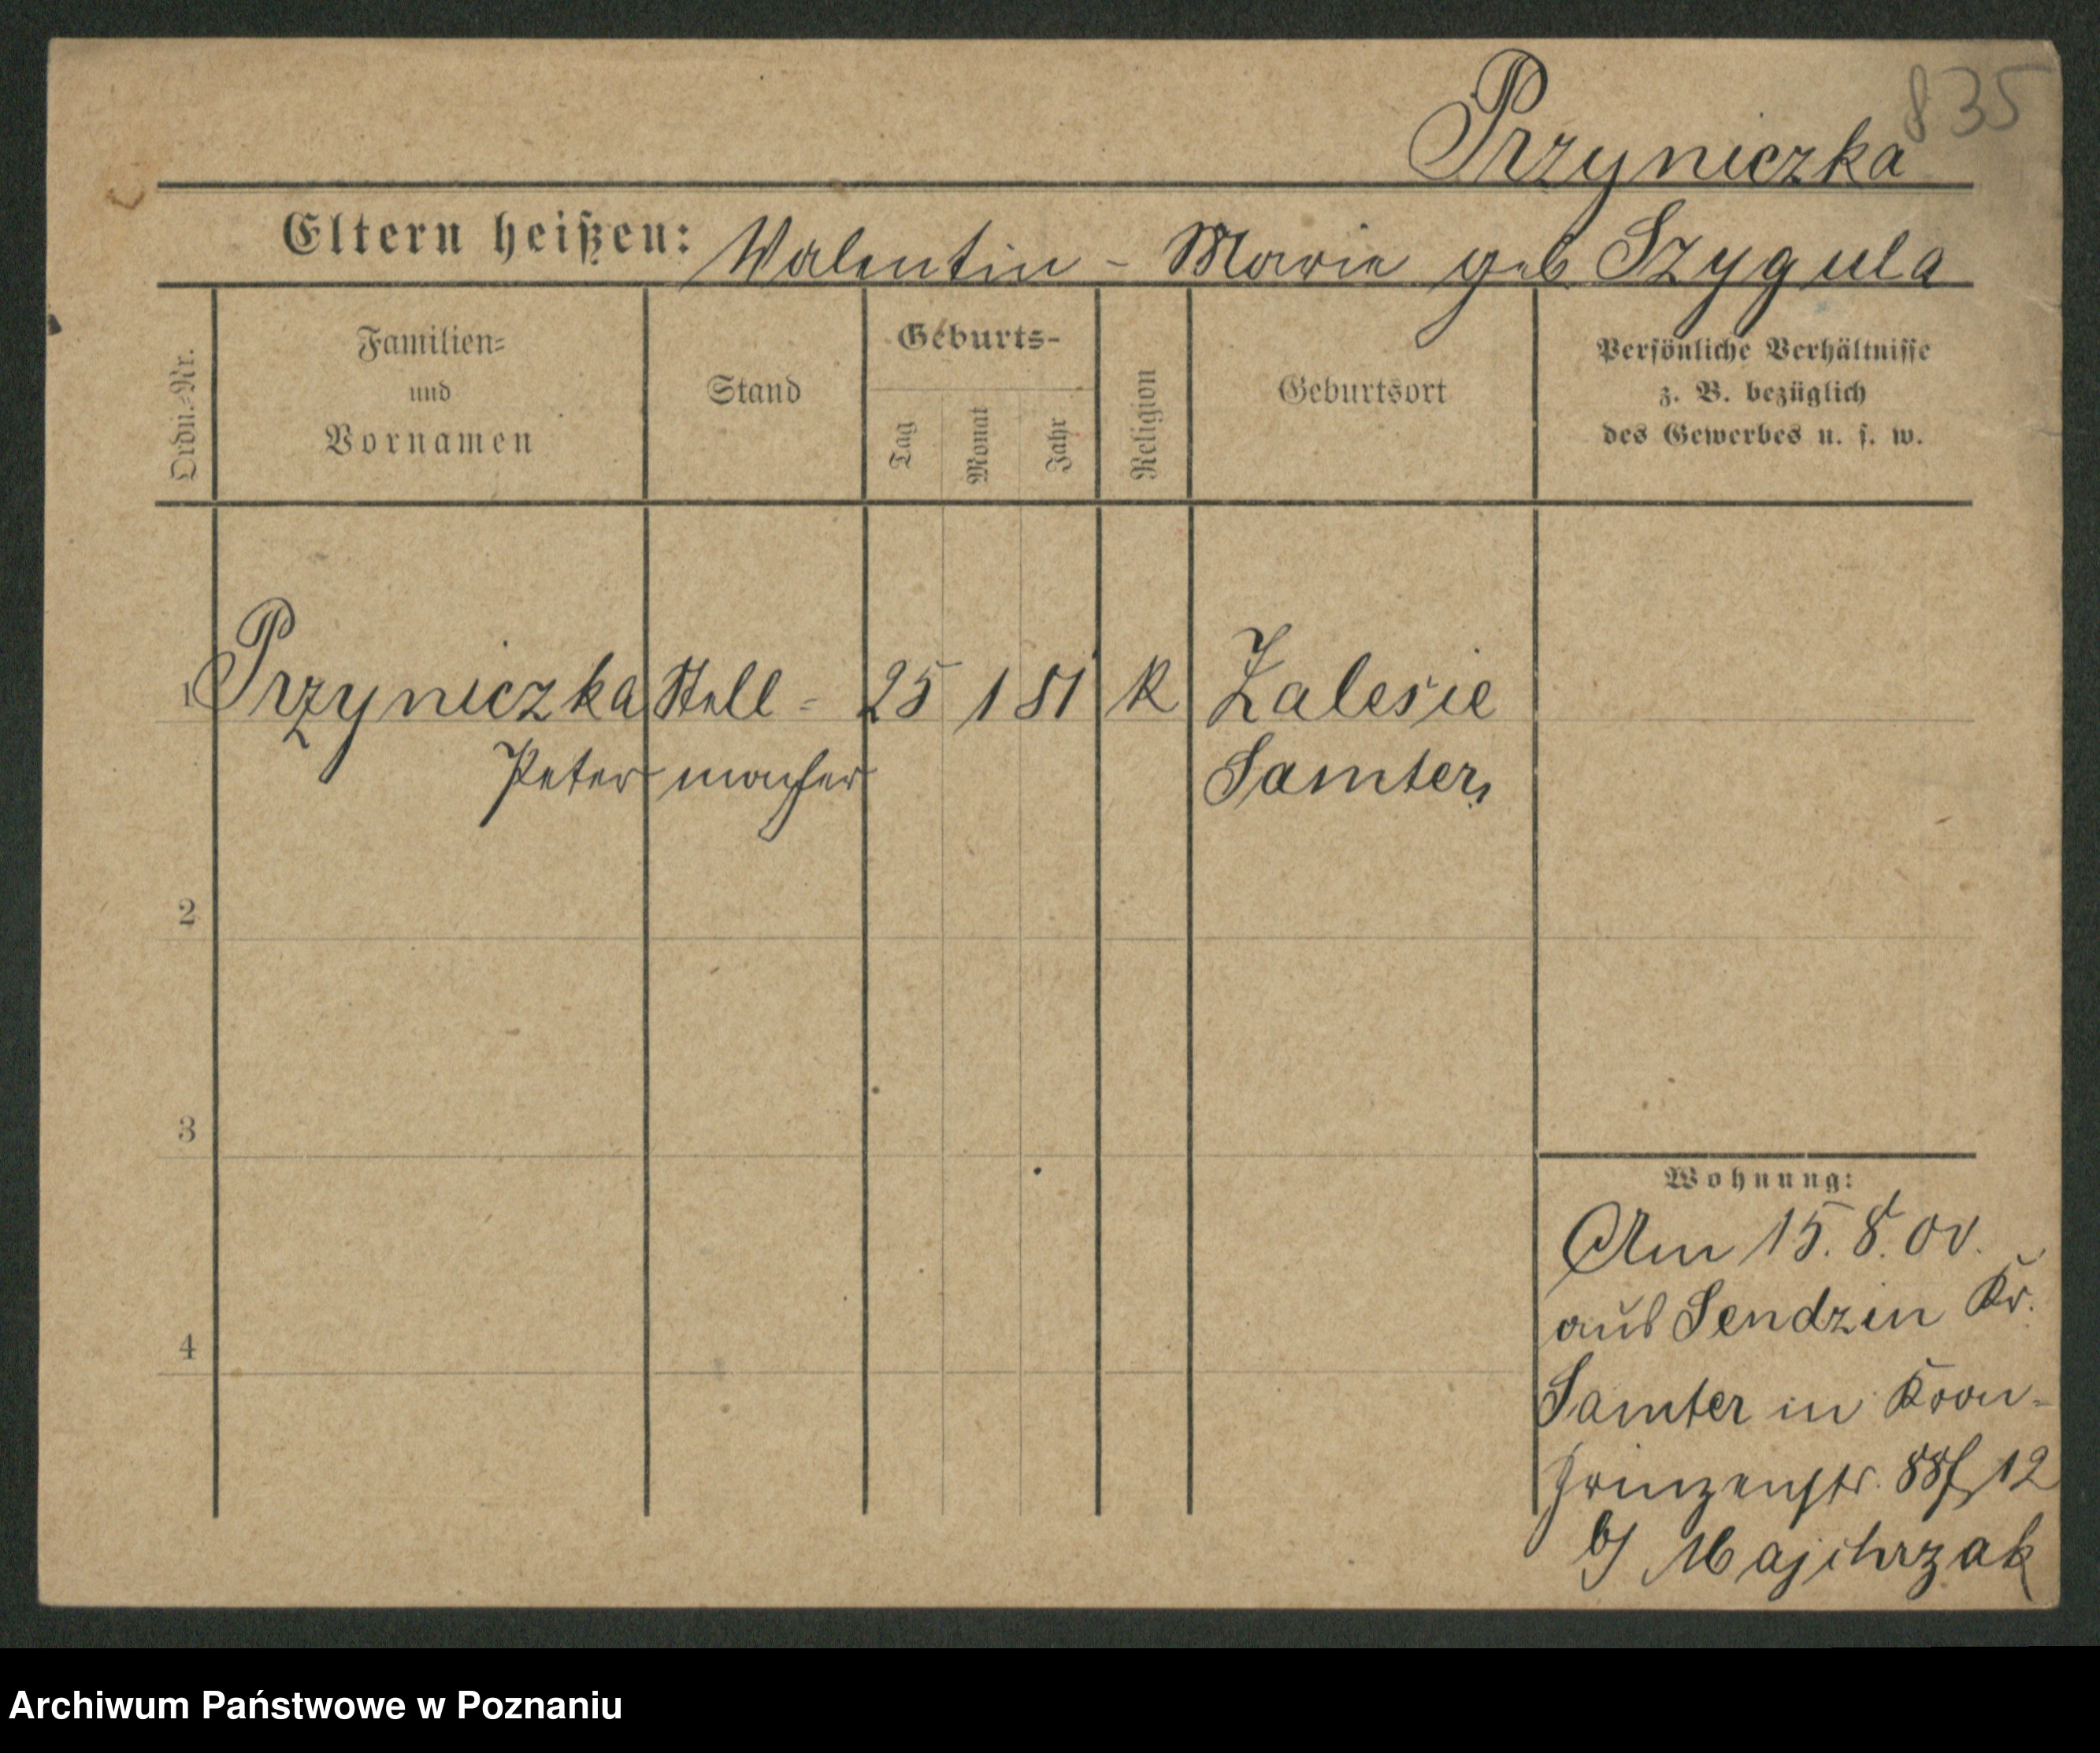 835
Przyniczka
Eltern heißen: Valentin - Marie geb Szygula
Ordn.-Nr.
Familien-
und
Vornamen
Stand
Geburts-
Tag
Monat
Jahr
Religion
Geburtsort
Persönliche Verhältnisse
z. B. bezüglich
des Gewerbes u. s. w.
1 Przyniczka Stell- 25 1 81 K Zalesie
Peter macher Samter
2
3
4
Wohnung:
Am 15. 8. 00.
aus Sendzin Kr.
Samter in Kron-
prinzenstr. 12
b/ Majchrzak
Archiwum Państwowe w Poznaniu